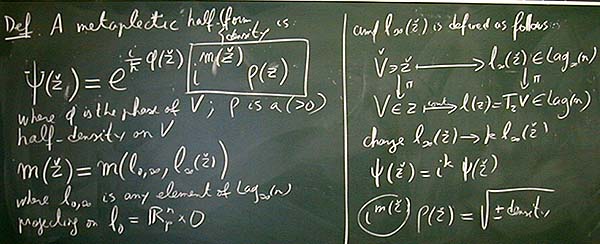 Def. A metaplectic half-{form density is:
ψ(ž) = e^{i/ħ φ(ž)} i^{m(ž)} ρ(z)
where φ is the phase of V̌; ρ is a (>0)
half-density on V
m(ž) = m(l₀,∞, l∞(ž))
where l₀,∞ is any element of Lag∞(n)
projecting on l₀ = ℝⁿₚ × 0
and l∞(ž) is defined as follows:
V̌ ∋ ž ⟷ l∞(ž) ∈ Lag∞(n)
↓π ↓π
V ∋ z →cont l(z) = T_z V ∈ Lag(n)
change l∞(ž) → k l∞(ž)
ψ(ž) = i^k ψ(ž)
i^{m(ž)} ρ(ž) = √± density